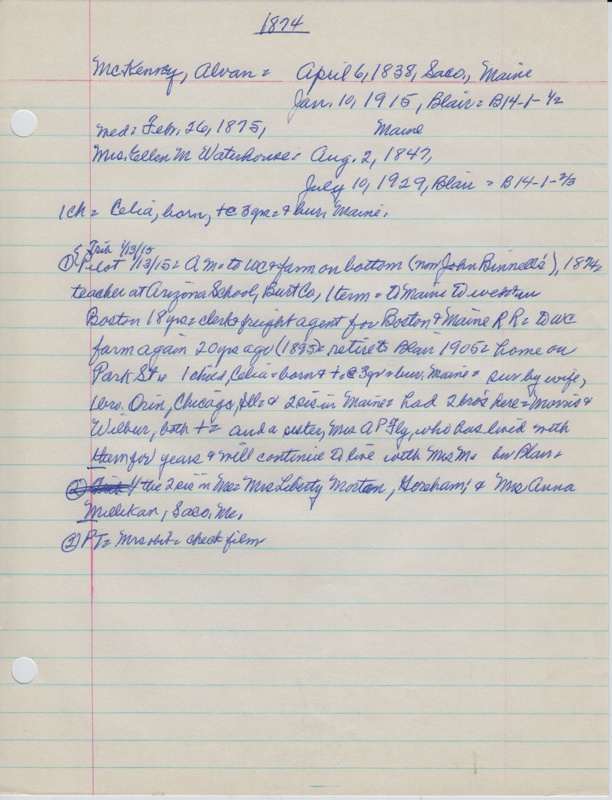 1874
McKenney, Alvan = April 6, 1838, Saco, Maine
Jan. 10, 1915, Blair = B14-1-1/2
med = Feb. 26, 1875, Maine
Mrs. Ellen M Waterhouse = Aug. 2, 1847,
July 10, 1929, Blair = B14-1-2/3
1 ch = Celia, born, + @ 3 yrs = + bur. Maine.
& Trib 1/13/15
① Pilot 1/13/15 = AM = to WC + farm on bottom (now John Binnell's), 1874 =
teacher at Arizona School, Burt Co, 1 term = to Maine to
Boston 18 yrs = clerk + freight agent for Boston + Maine RR = to WC
farm again 20 yrs ago (1895) = retire to Blair 1905 = home on
Park St = 1 child, Celia = born + + @ 3 yr = bur. Maine = sur by wife,
1 bro. Orin, Chicago, Ill = & 2 sis in Maine = had 2 bros here = Morris &
Wilbur, both + = and a sister, Mrs A P Fly, who has lived with
them for years & will continue to live with Mrs Mc in Blair =
② the 2 sis in Me = Mrs Liberty Morton, Goreham, & Mrs Anna
Millikan, Saco, Me.
③ PT = Mrs obit = check film